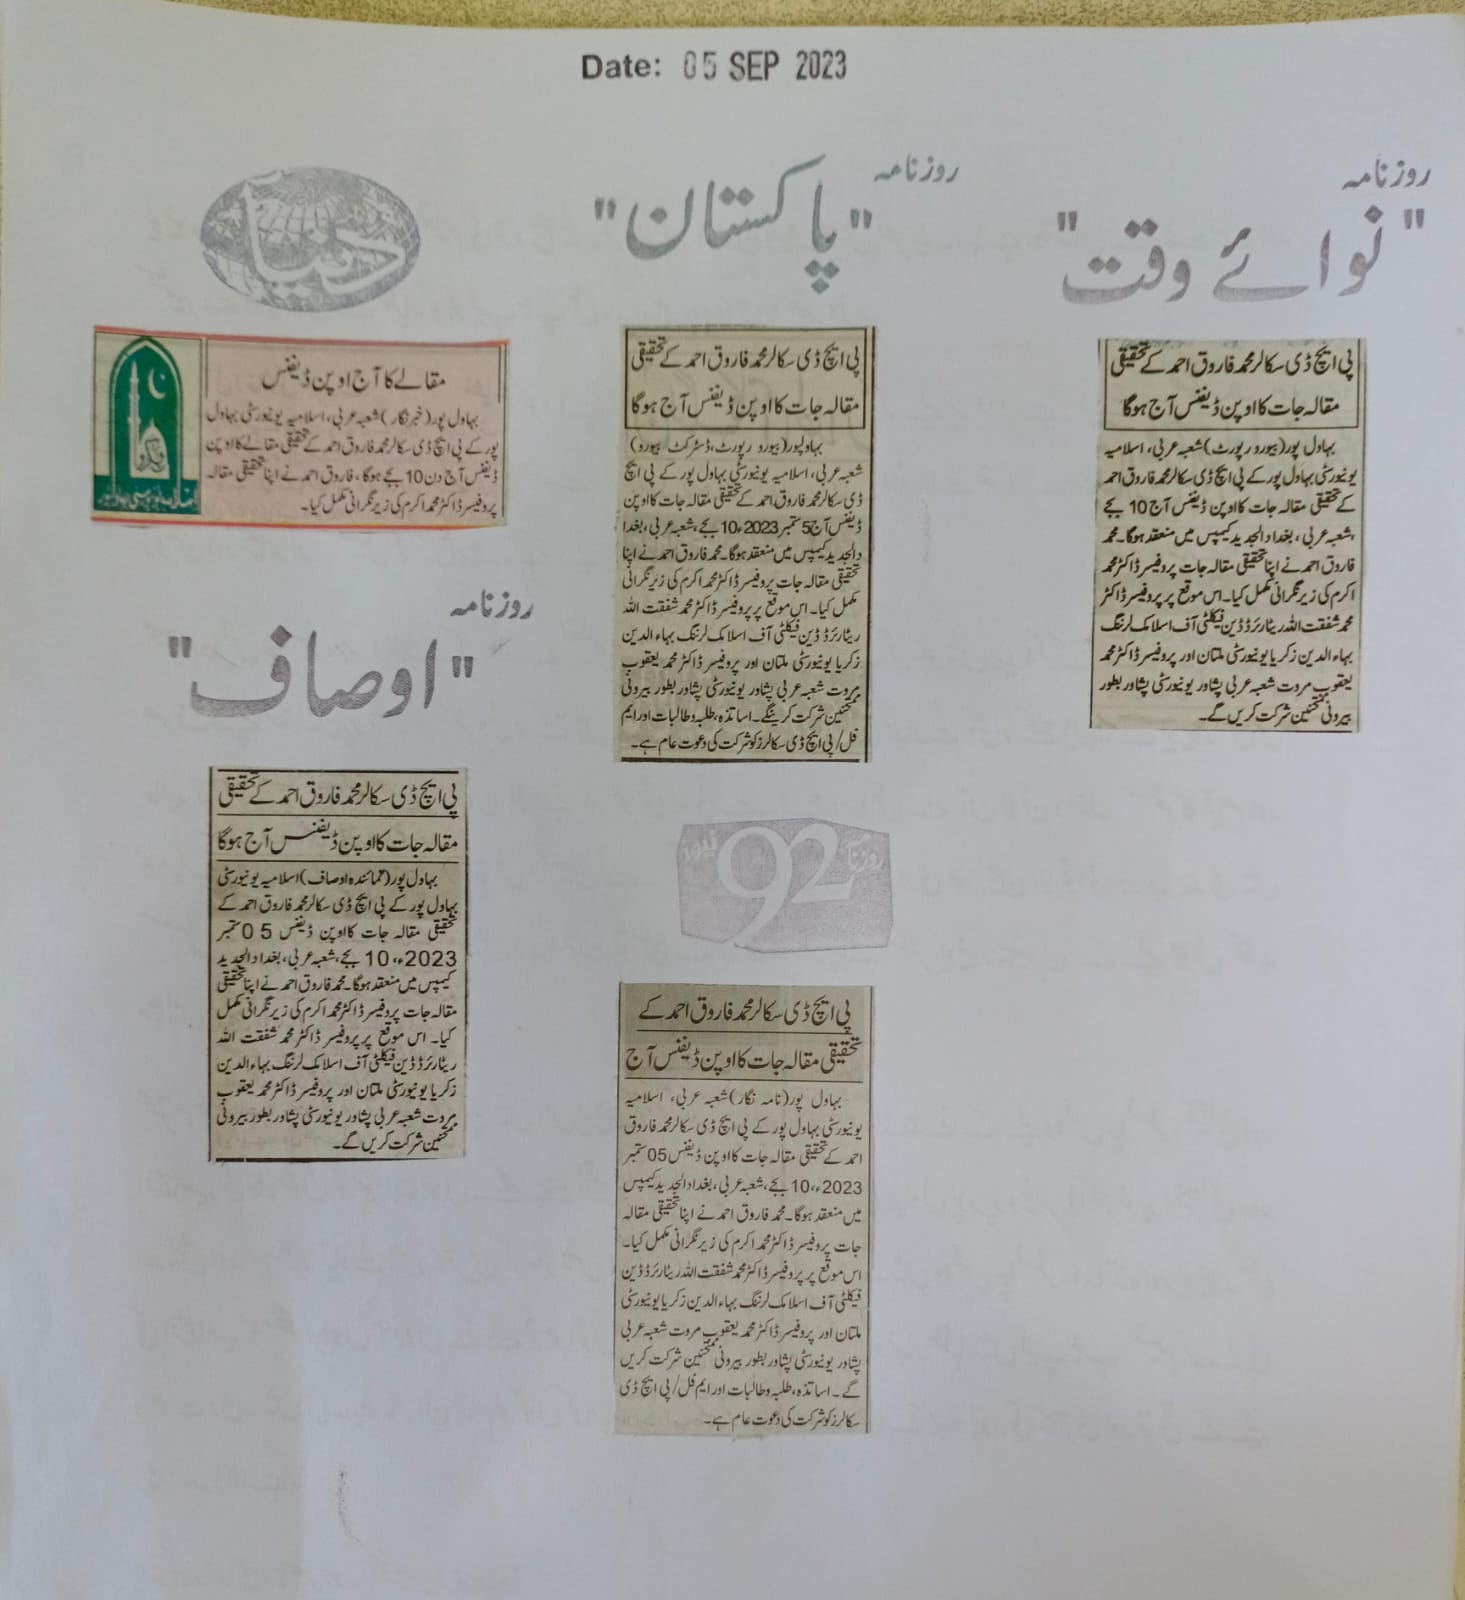 Date: 05 SEP 2023
روزنامہ
"نوائے وقت"
پی ایچ ڈی سکالر محمد فاروق احمد کے تحقیقی
مقالہ جات کا اوپن ڈیفنس آج ہوگا
بہاول پور (بیورو رپورٹ) شعبہ عربی، اسلامیہ
یونیورسٹی بہاول پور کے پی ایچ ڈی سکالر محمد فاروق احمد
کے تحقیقی مقالہ جات کا اوپن ڈیفنس آج 10 بجے
شعبہ عربی، بغداد الجدید کیمپس میں منعقد ہوگا۔ محمد
فاروق احمد نے اپنا تحقیقی مقالہ جات پروفیسر ڈاکٹر محمد
اکرم کی زیر نگرانی مکمل کیا۔ اس موقع پر پروفیسر ڈاکٹر
محمد شفقت اللہ ریٹائرڈ ڈین فیکلٹی آف اسلامک لرننگ
بہاء الدین زکریا یونیورسٹی ملتان اور پروفیسر ڈاکٹر محمد
یعقوب مروت شعبہ عربی پشاور یونیورسٹی پشاور بطور
بیرونی ممتحنین شرکت کریں گے۔
روزنامہ
"پاکستان"
پی ایچ ڈی سکالر محمد فاروق احمد کے تحقیقی
مقالہ جات کا اوپن ڈیفنس آج ہوگا
بہاولپور (بیورو رپورٹ، ڈسٹرکٹ بیورو)
شعبہ عربی، اسلامیہ یونیورسٹی بہاول پور کے پی ایچ
ڈی سکالر محمد فاروق احمد کے تحقیقی مقالہ جات کا اوپن
ڈیفنس آج 5 ستمبر 2023ء 10 بجے، شعبہ عربی، بغدا
دالجدید کیمپس میں منعقد ہوگا۔ محمد فاروق احمد نے اپنا
تحقیقی مقالہ جات پروفیسر ڈاکٹر محمد اکرم کی زیر نگرانی
مکمل کیا۔ اس موقع پر پروفیسر ڈاکٹر محمد شفقت اللہ
ریٹائرڈ ڈین فیکلٹی آف اسلامک لرننگ بہاء الدین
زکریا یونیورسٹی ملتان اور پروفیسر ڈاکٹر محمد یعقوب
مروت شعبہ عربی پشاور یونیورسٹی پشاور بطور بیرونی
ممتحنین شرکت کرینگے۔ اساتذہ، طلبہ و طالبات اور ایم
فل/ پی ایچ ڈی سکالرز کو شرکت کی دعوت عام ہے۔
دنیا
مقالے کا آج اوپن ڈیفنس
بہاول پور (خبر نگار) شعبہ عربی، اسلامیہ یونیورسٹی بہاول
پور کے پی ایچ ڈی سکالر محمد فاروق احمد کے تحقیقی مقالے کا اوپن
ڈیفنس آج دن 10 بجے ہوگا، فاروق احمد نے اپنا تحقیقی مقالہ
پروفیسر ڈاکٹر محمد اکرم کی زیر نگرانی مکمل کیا۔
روزنامہ
"اوصاف"
پی ایچ ڈی سکالر محمد فاروق احمد کے تحقیقی
مقالہ جات کا اوپن ڈیفنس آج ہوگا
بہاول پور (نمائندہ اوصاف) اسلامیہ یونیورسٹی
بہاول پور کے پی ایچ ڈی سکالر محمد فاروق احمد کے
تحقیقی مقالہ جات کا اوپن ڈیفنس 05 ستمبر
2023ء، 10 بجے، شعبہ عربی، بغداد الجدید
کیمپس میں منعقد ہوگا۔ محمد فاروق احمد نے اپنا تحقیقی
مقالہ جات پروفیسر ڈاکٹر محمد اکرم کی زیر نگرانی مکمل
کیا۔ اس موقع پر پروفیسر ڈاکٹر محمد شفقت اللہ
ریٹائرڈ ڈین فیکلٹی آف اسلامک لرننگ بہاء الدین
زکریا یونیورسٹی ملتان اور پروفیسر ڈاکٹر محمد یعقوب
مروت شعبہ عربی پشاور یونیورسٹی پشاور بطور بیرونی
ممتحنین شرکت کریں گے۔
روزنامہ 92 نیوز
پی ایچ ڈی سکالر محمد فاروق احمد کے
تحقیقی مقالہ جات کا اوپن ڈیفنس آج
بہاول پور (نامہ نگار) شعبہ عربی، اسلامیہ
یونیورسٹی بہاول پور کے پی ایچ ڈی سکالر محمد فاروق
احمد کے تحقیقی مقالہ جات کا اوپن ڈیفنس 05 ستمبر
2023ء، 10 بجے، شعبہ عربی، بغداد الجدید کیمپس
میں منعقد ہوگا۔ محمد فاروق احمد نے اپنا تحقیقی مقالہ
جات پروفیسر ڈاکٹر محمد اکرم کی زیر نگرانی مکمل کیا۔
اس موقع پر پروفیسر ڈاکٹر محمد شفقت اللہ ریٹائرڈ ڈین
فیکلٹی آف اسلامک لرننگ بہاء الدین زکریا یونیورسٹی
ملتان اور پروفیسر ڈاکٹر محمد یعقوب مروت شعبہ عربی
پشاور یونیورسٹی پشاور بطور بیرونی ممتحنین شرکت کریں
گے۔ اساتذہ، طلبہ و طالبات اور ایم فل/ پی ایچ ڈی
سکالرز کو شرکت کی دعوت عام ہے۔